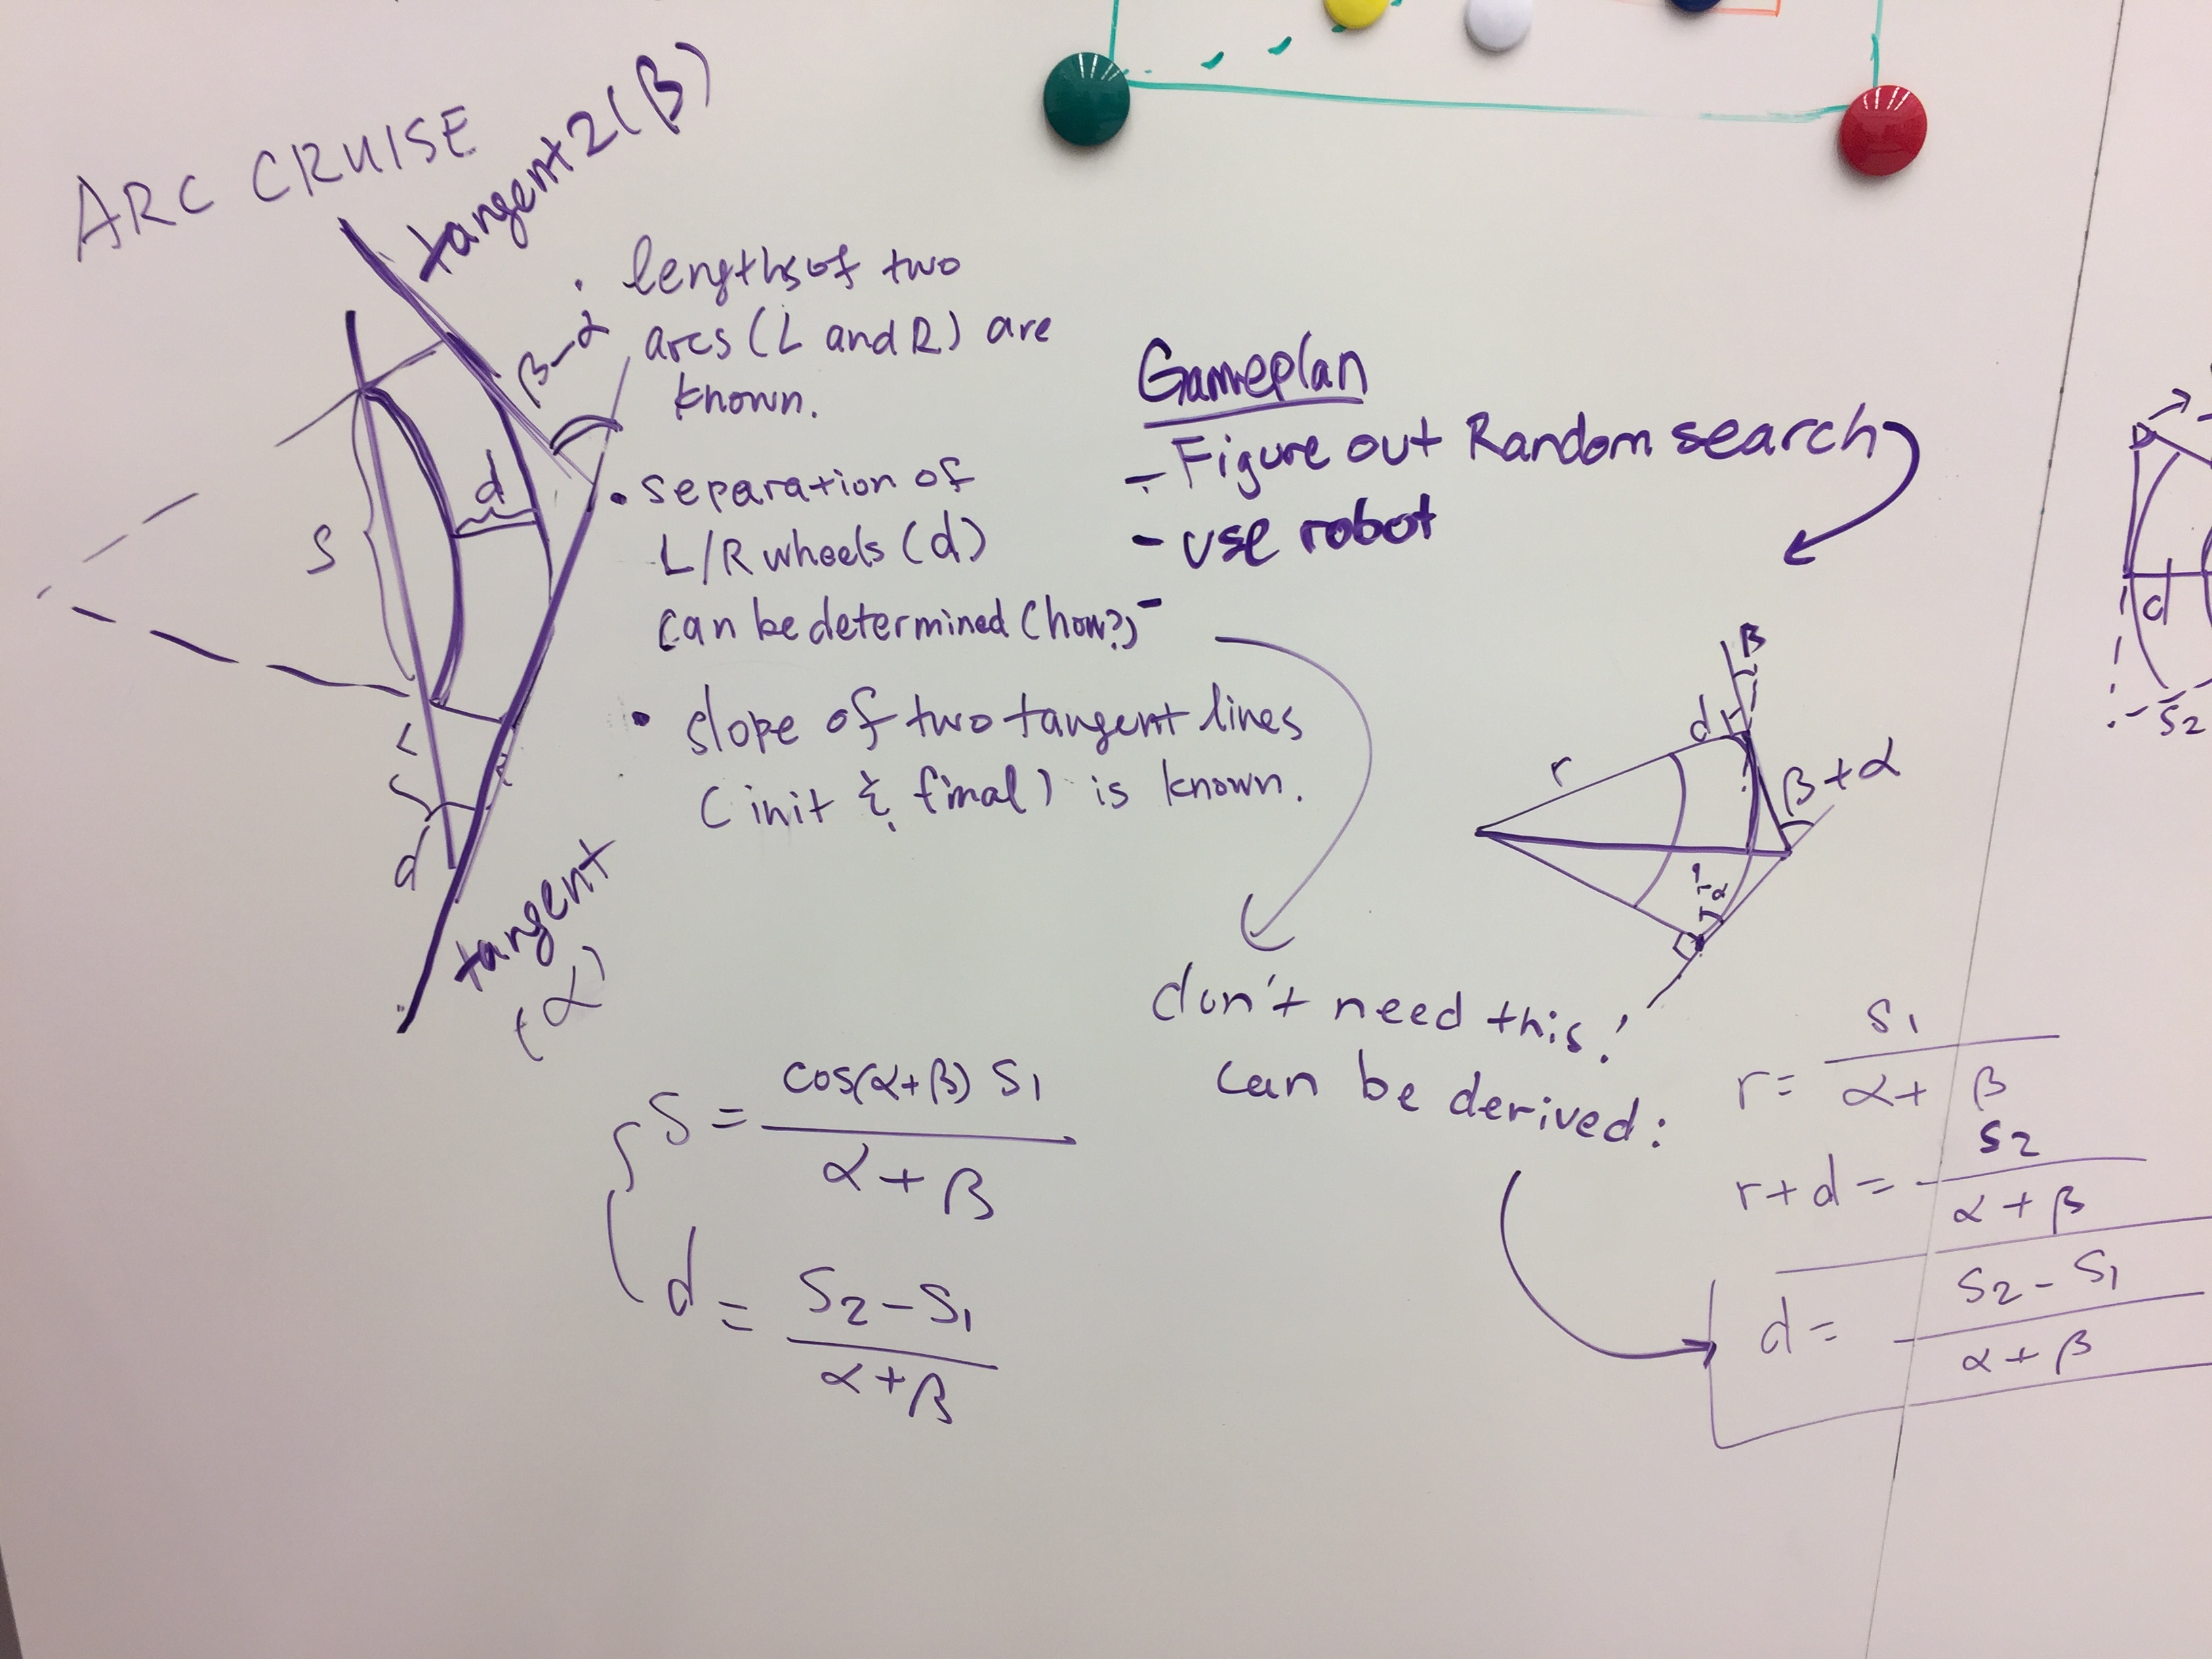 ARC CRUISE
tangent2(β)
β-α
d
S
α
tangent
(α)
· lengths of two
arcs (L and R) are
known.
• separation of
L/R wheels (d)
can be determined (how?)
• slope of two tangent lines
(init & final) is known.
Gameplan
- Figure out Random search
- use robot
β
d
r
β+α
α
d
S2
don't need this!
can be derived:
S = cos(α+β) S1
α+β
d = S2-S1
α+β
r= S1
α+β
r+d = S2
α+β
d= S2-S1
α+β